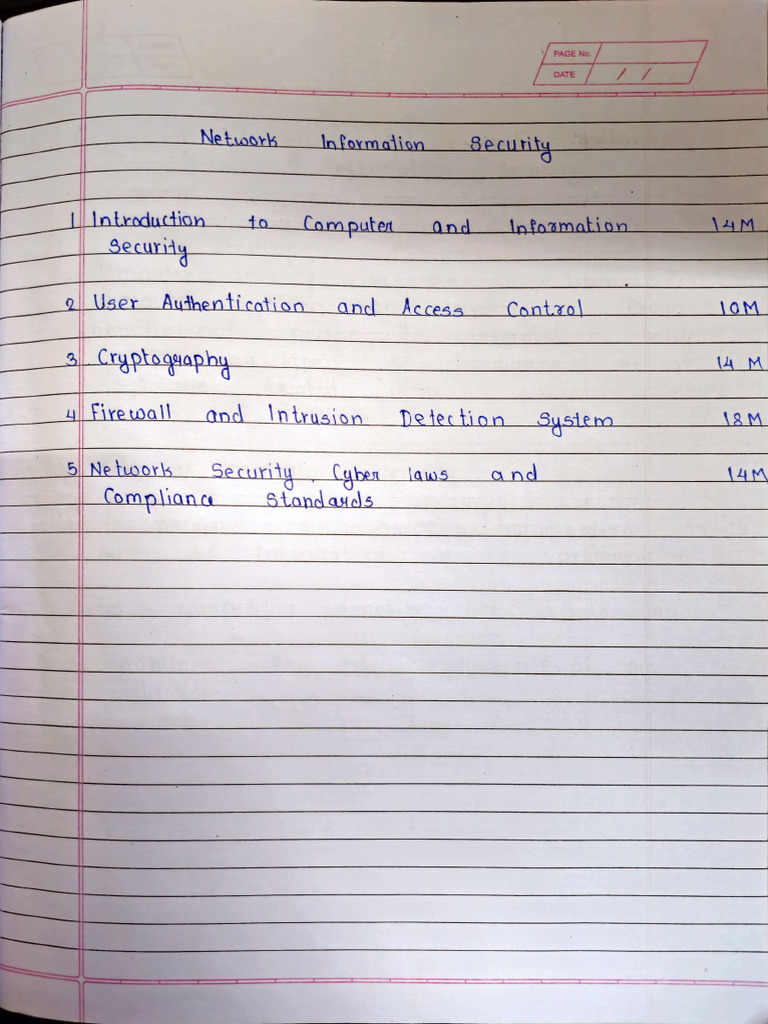 PAGE No.
DATE / /
Network Information Security
1 Introduction to Computer and Information 14M
Security
2 User Authentication and Access Control 10M
3 Cryptography 14 M
4 Firewall and Intrusion Detection System 18M
5 Network Security, Cyber laws and 14M
Compliance Standards